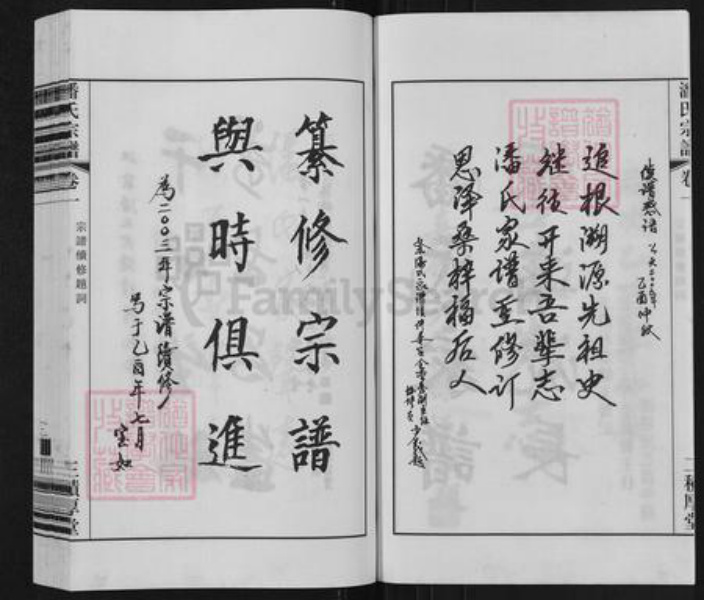 潘氏宗譜 卷一
修譜感語 公元二〇〇五年
乙酉仲秋
追根溯源先祖史
继往开来吾輩志
潘氏家譜重修订
思泽桑梓福后人
纂修宗譜
與時俱進
為二〇〇三年宗譜續修
写于乙酉年七月
宝如
潘氏宗譜 卷一
宗譜續修題詞
三積厚堂
FamilySearch